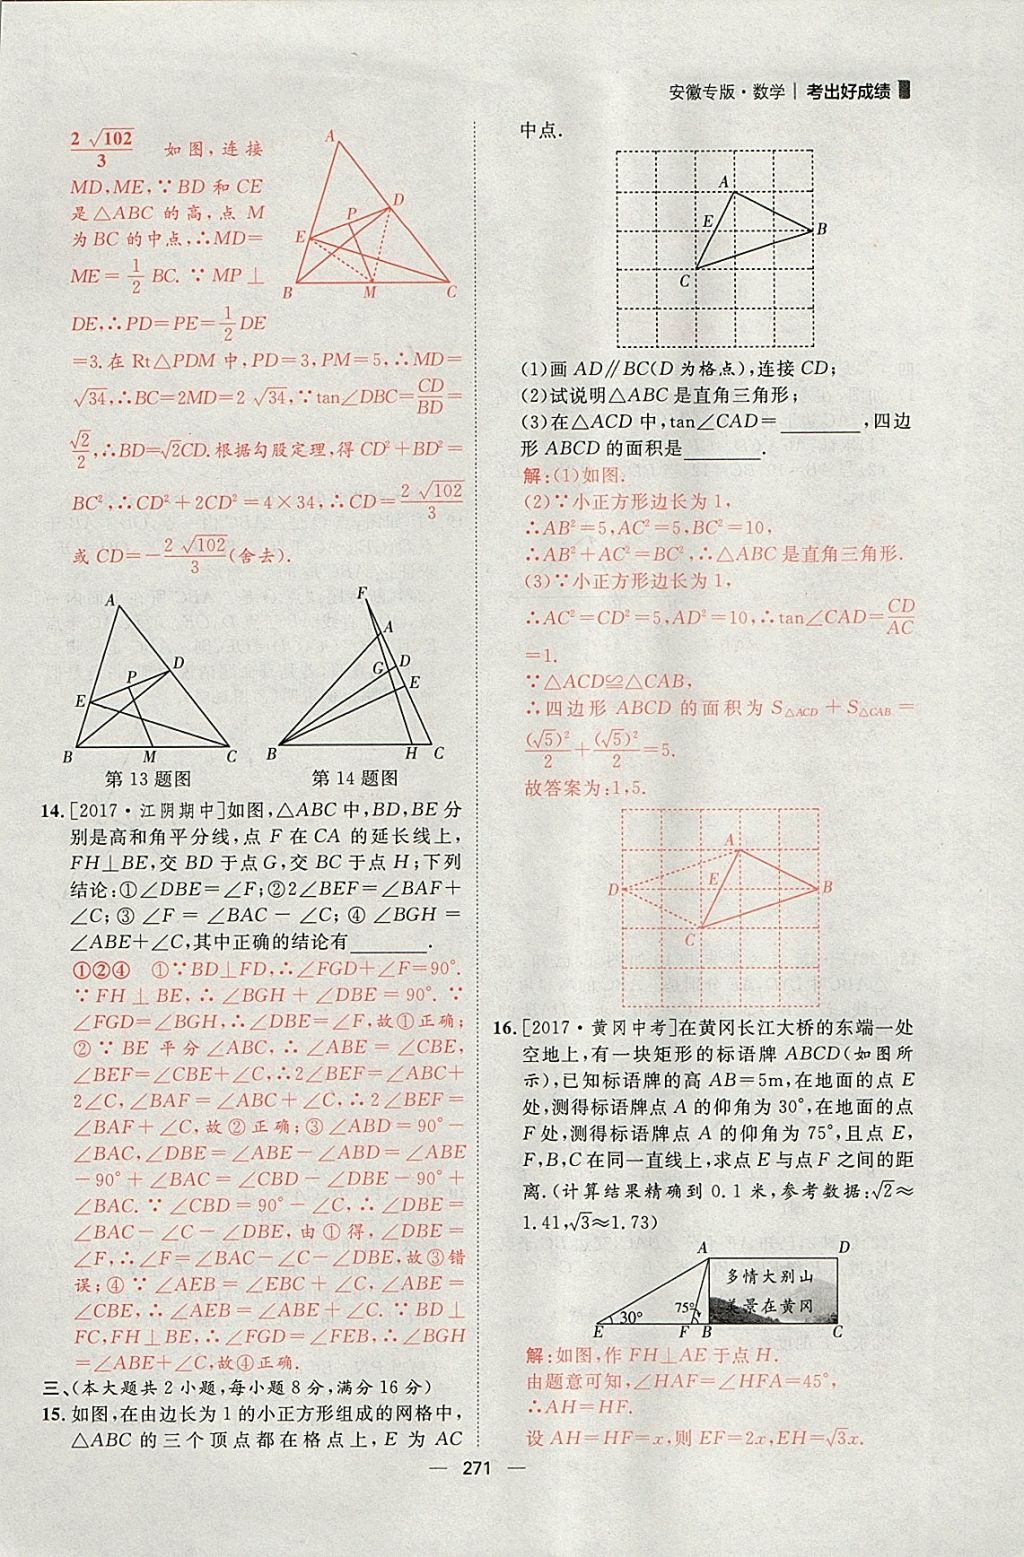 安徽专版·数学 | 考出好成绩
2√102/3 如图,连接
MD,ME,∵BD 和 CE
是△ABC 的高,点 M
为 BC 的中点,∴MD=
ME=1/2 BC. ∵ MP⊥
DE,∴PD=PE=1/2 DE
=3.在 Rt△PDM 中,PD=3,PM=5,∴MD=
√34,∴BC=2MD=2√34,∵tan∠DBC=CD/BD=
√2/2,∴BD=√2CD.根据勾股定理,得 CD²+BD²=
BC²,∴CD²+2CD²=4×34,∴CD=2√102/3
或 CD=-2√102/3(舍去).
A
D
P
E
B
M
C
A
D
P
E
B
M
C
第13题图
F
A
G
D
E
B
H
C
第14题图
14.[2017·江阴期中]如图,△ABC 中,BD,BE 分
别是高和角平分线,点 F 在 CA 的延长线上,
FH⊥BE,交 BD 于点 G,交 BC 于点 H;下列
结论:①∠DBE=∠F;②2∠BEF=∠BAF+
∠C;③∠F=∠BAC-∠C;④∠BGH=
∠ABE+∠C,其中正确的结论有______.
①②④ ①∵BD⊥FD,∴∠FGD+∠F=90°.
∵FH⊥BE,∴∠BGH+∠DBE=90°.∵
∠FGD=∠BGH,∴∠DBE=∠F,故①正确;
②∵BE 平分∠ABC,∴∠ABE=∠CBE,
∠BEF=∠CBE+∠C,∴2∠BEF=∠ABC+
2∠C,∠BAF=∠ABC+∠C,∴2∠BEF=
∠BAF+∠C,故②正确;③∠ABD=90°-
∠BAC,∠DBE=∠ABE-∠ABD=∠ABE
-90°+∠BAC=∠CBD-∠DBE-90°+∠
BAC.∵∠CBD=90°-∠C,∴∠DBE=
∠BAC-∠C-∠DBE,由①得,∠DBE=
∠F,∴∠F=∠BAC-∠C-∠DBE,故③错
误;④∵∠AEB=∠EBC+∠C,∠ABE=
∠CBE,∴∠AEB=∠ABE+∠C.∵BD⊥
FC,FH⊥BE,∴∠FGD=∠FEB,∴∠BGH
=∠ABE+∠C,故④正确.
三、(本大题共2小题,每小题8分,满分16分)
15.如图,在由边长为1的小正方形组成的网格中,
△ABC 的三个顶点都在格点上,E 为 AC
中点.
A
E
B
C
(1)画 AD∥BC(D 为格点),连接 CD;
(2)试说明△ABC 是直角三角形;
(3)在△ACD 中,tan∠CAD=______,四边
形 ABCD 的面积是______.
解:(1)如图.
(2)∵小正方形边长为1,
∴AB²=5,AC²=5,BC²=10,
∴AB²+AC²=BC²,∴△ABC 是直角三角形.
(3)∵小正方形边长为1,
∴AC²=CD²=5,AD²=10,∴tan∠CAD=CD/AC
=1.
∵△ACD≌△CAB,
∴四边形 ABCD 的面积为 S△ACD+S△CAB=
(√5)²/2+(√5)²/2=5.
故答案为:1,5.
A
D
E
B
C
16.[2017·黄冈中考]在黄冈长江大桥的东端一处
空地上,有一块矩形的标语牌 ABCD(如图所
示),已知标语牌的高 AB=5m,在地面的点 E
处,测得标语牌点 A 的仰角为 30°,在地面的点
F 处,测得标语牌点 A 的仰角为 75°,且点 E,
F,B,C 在同一直线上,求点 E 与点 F 之间的距
离.(计算结果精确到 0.1 米,参考数据:√2≈
1.41,√3≈1.73)
A
D
多情大别山
美景在黄冈
75°
30°
E
F
B
C
解:如图,作 FH⊥AE 于点 H.
由题意可知,∠HAF=∠HFA=45°,
∴AH=HF.
设 AH=HF=x,则 EF=2x,EH=√3x.
— 271 —